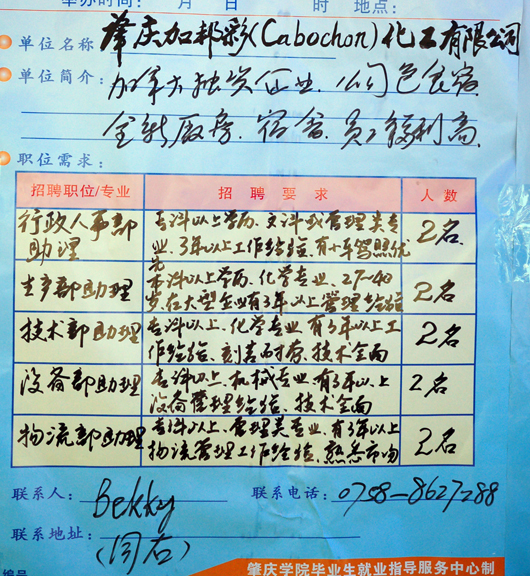 举办时间： 月 日 时 地点：
单位名称 肇庆加邦彩(Cabochon)化工有限公司
单位简介：加拿大独资企业，公司包食宿
全新厂房、宿舍、员工福利高
职位需求：
招聘职位/专业 招聘要求 人数
行政人事部助理 专科以上学历、文科或管理类专业、3年以上工作经验、有小车驾照优先 2名
生产部助理 本科以上学历、化学专业、27—40岁在大型企业有3年以上管理经验 2名
技术部助理 专科以上、化学专业 有3年以上工作经验、刻苦耐劳、技术全面 2名
设备部助理 专科以上、机械专业、有3年以上设备管理经验、技术全面 2名
物流部助理 专科以上、管理类专业、有3年以上物流管理工作经验、熟悉市场 2名
联系人：Bekky 联系电话：0758—8627288
联系地址：
(同右)
编号 肇庆学院毕业生就业指导服务中心制